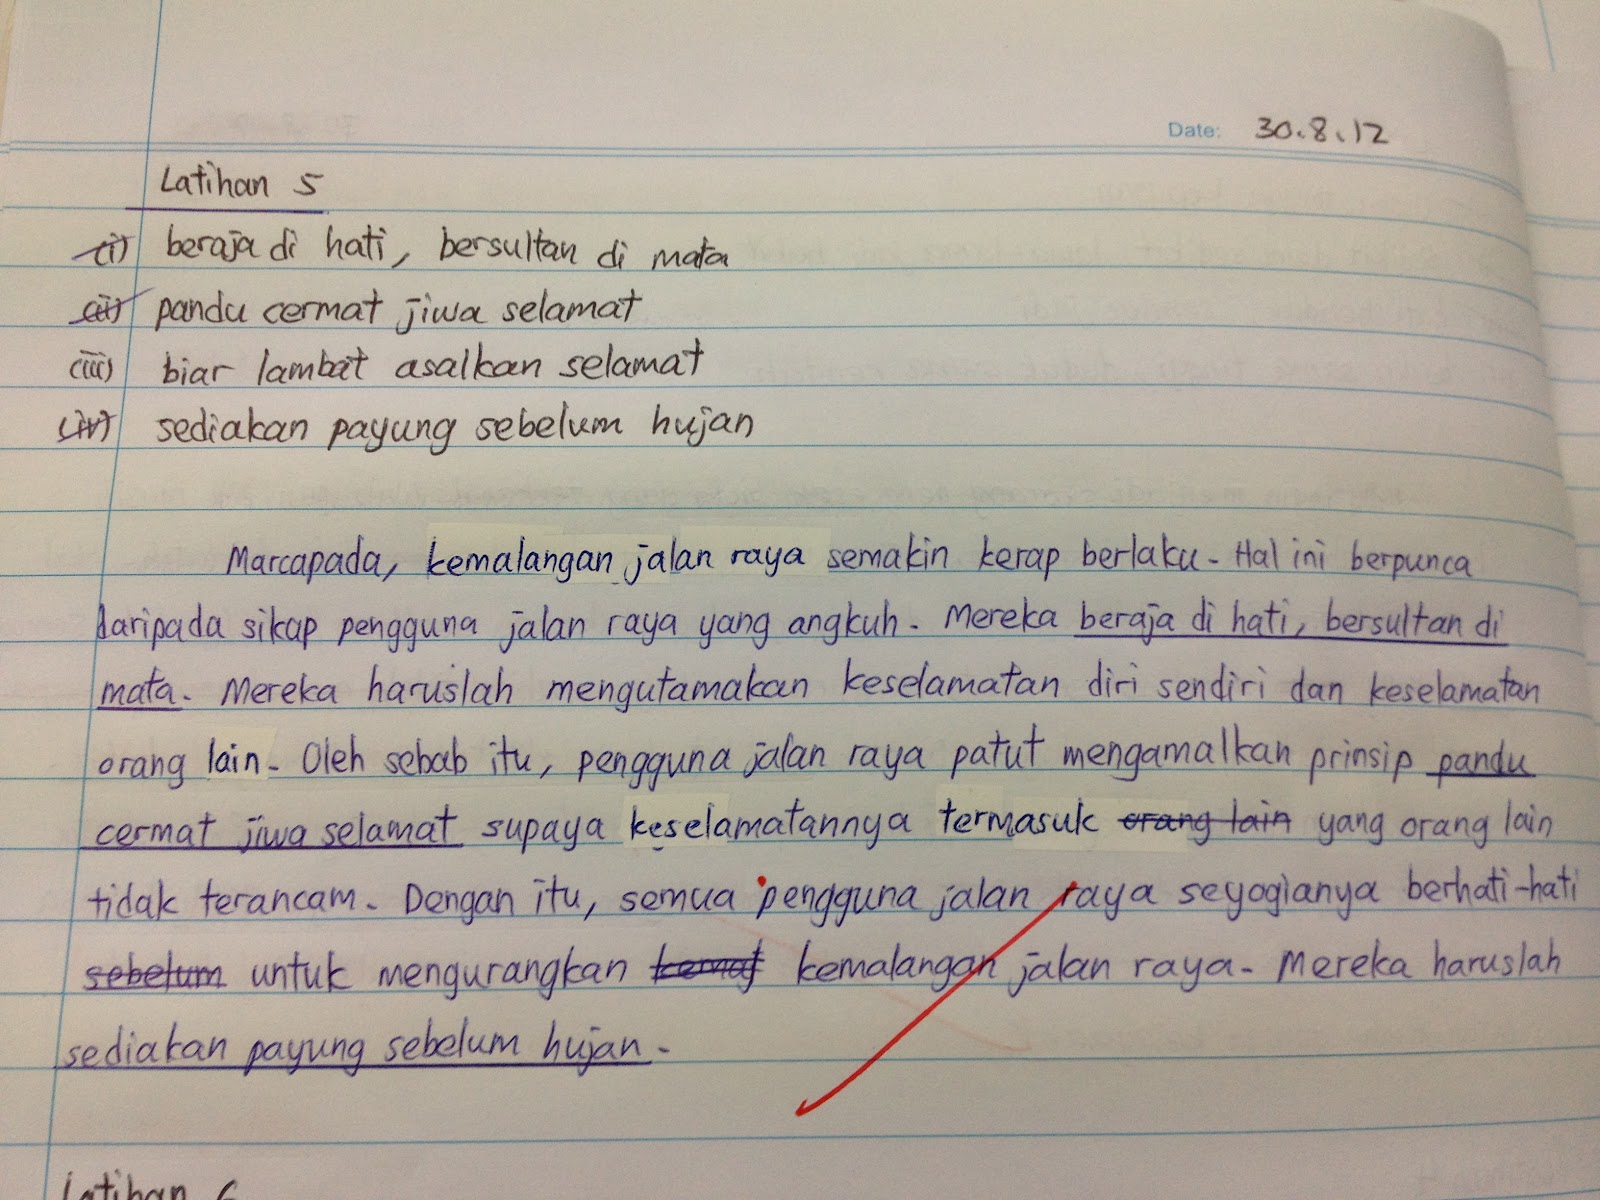 Date: 30.8.12
Latihan 5
(i) beraja di hati, bersultan di mata
(ii) pandu cermat jiwa selamat
(iii) biar lambat asalkan selamat
(iv) sediakan payung sebelum hujan
Marcapada, kemalangan jalan raya semakin kerap berlaku. Hal ini berpunca
daripada sikap pengguna jalan raya yang angkuh. Mereka beraja di hati, bersultan di
mata. Mereka haruslah mengutamakan keselamatan diri sendiri dan keselamatan
orang lain. Oleh sebab itu, pengguna jalan raya patut mengamalkan prinsip pandu
cermat jiwa selamat supaya keselamatannya termasuk orang lain yang orang lain
tidak terancam. Dengan itu, semua pengguna jalan raya seyogianya berhati-hati
sebelum untuk mengurangkan kemal kemalangan jalan raya. Mereka haruslah
sediakan payung sebelum hujan.
Latihan 6